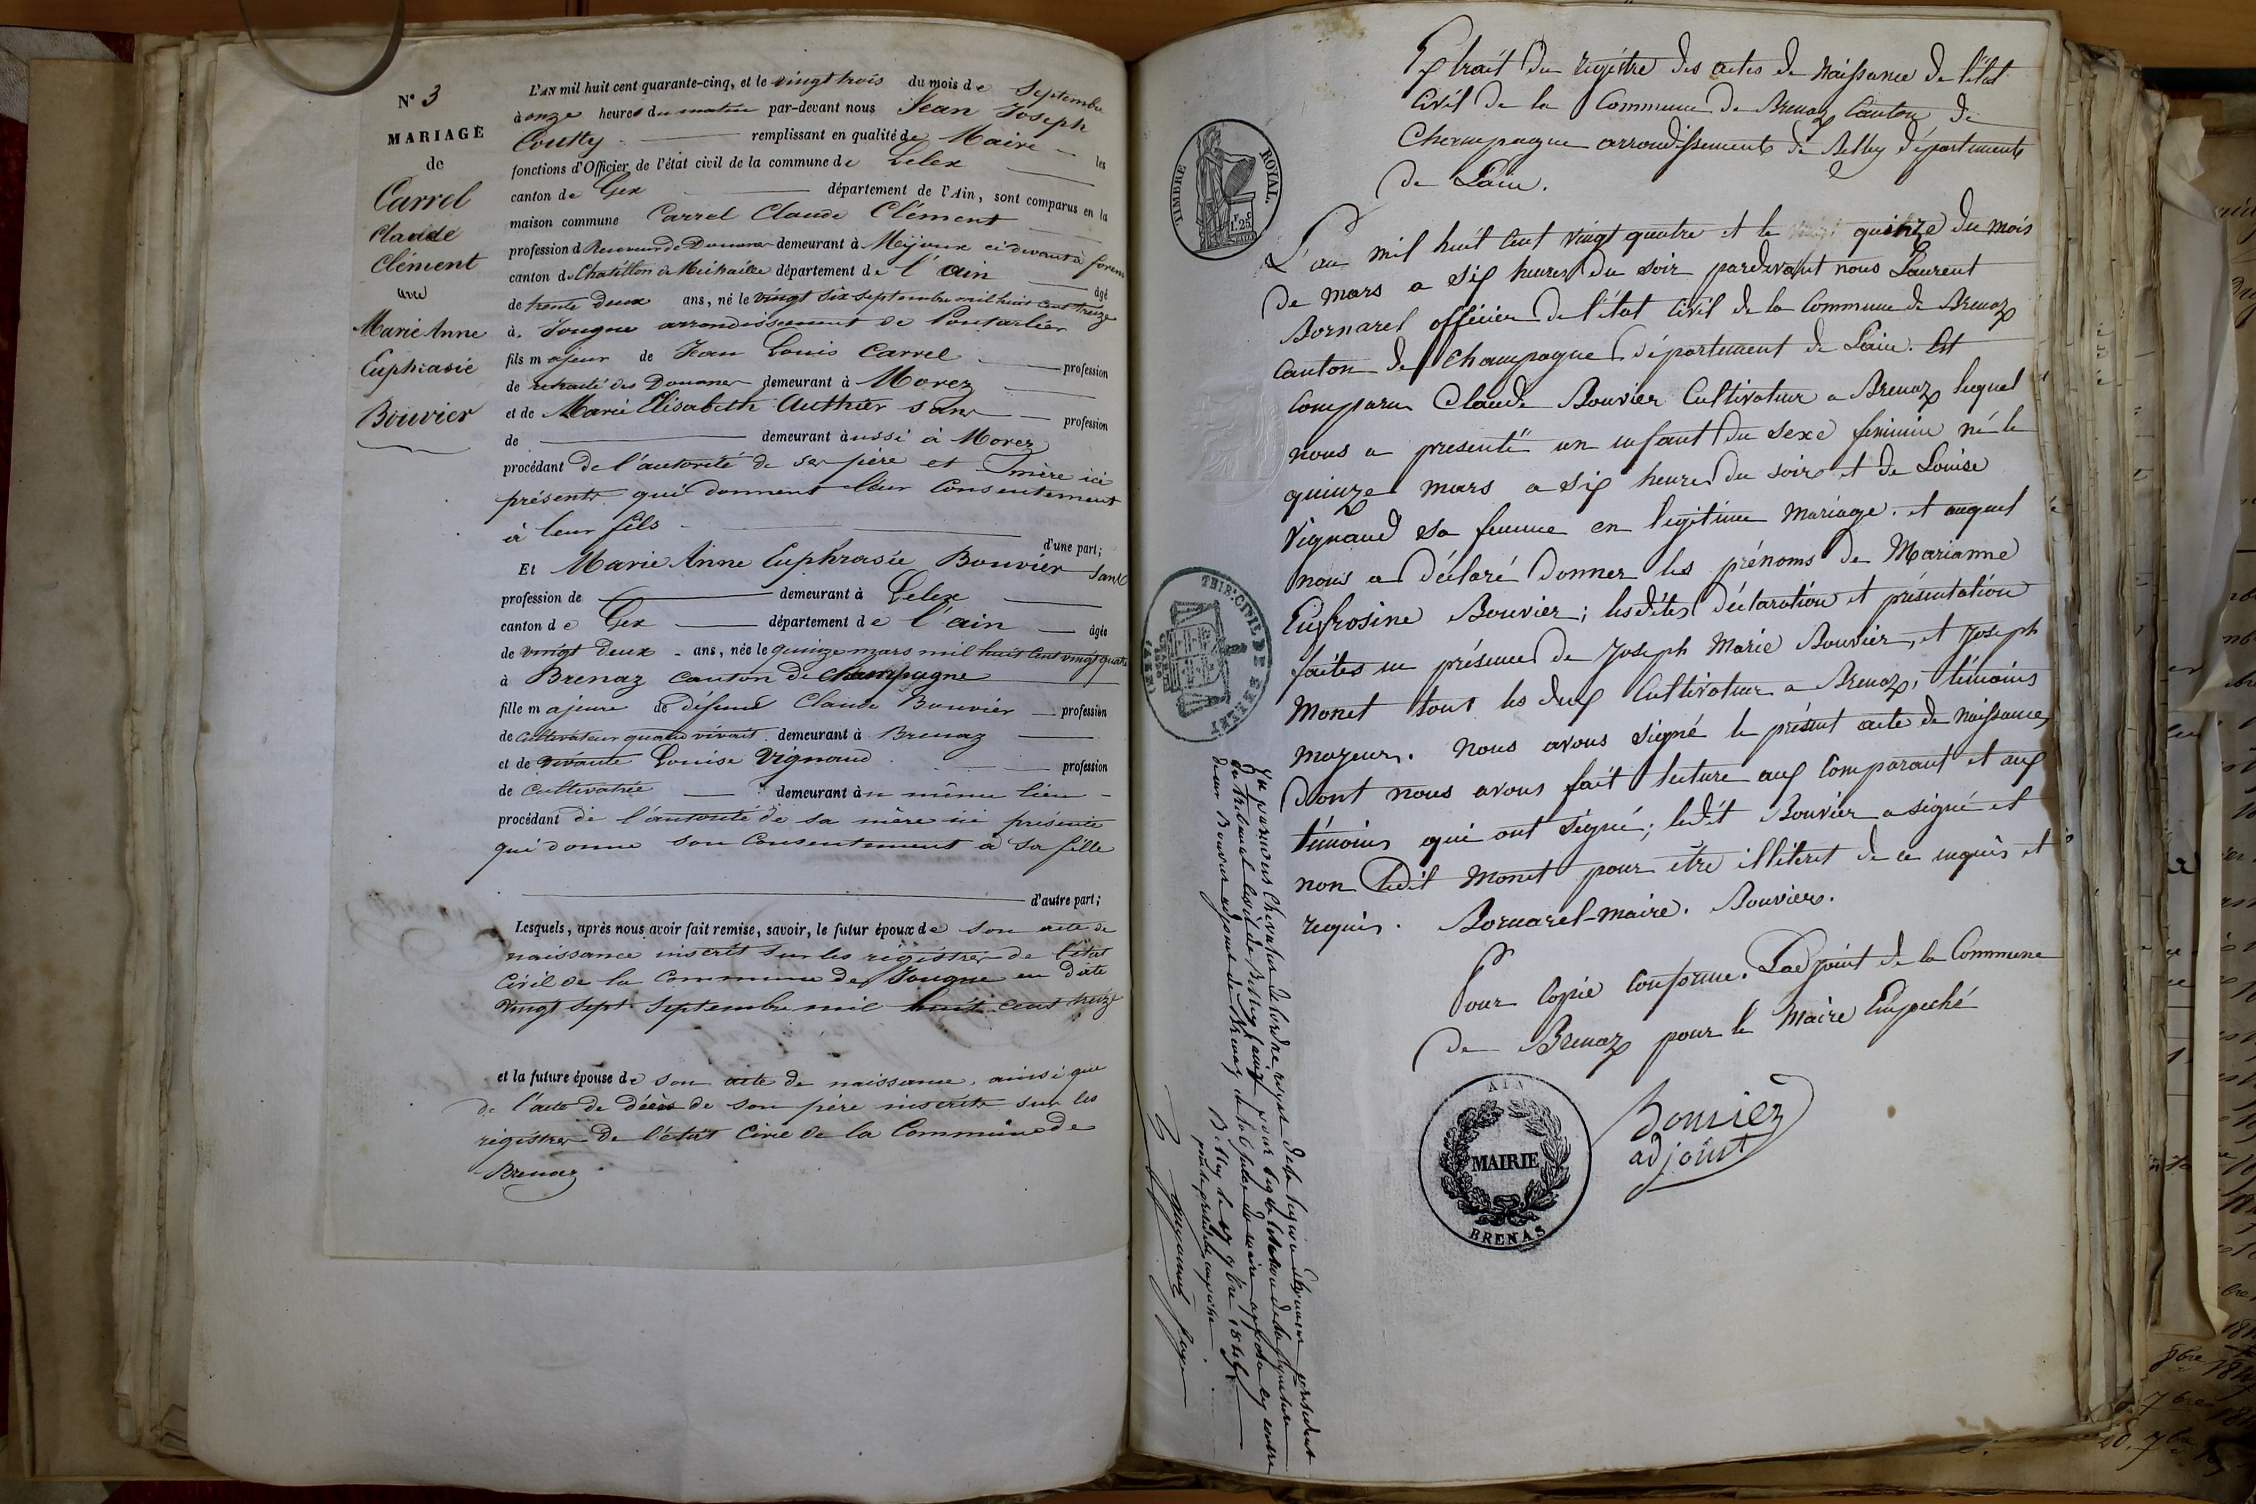 N° 3
MARIAGE
de
Carrel
Claude
Clément
avec
Marie Anne
Euphrasie
Bouvier
L'AN mil huit cent quarante-cinq, et le vingt trois du mois de Septembre
à onze heures du matin par-devant nous Jean Joseph
remplissant en qualité de Maire les
fonctions d'Officier de l'état civil de la commune de Lelex
canton de Gex département de l'Ain, sont comparus en la
maison commune Carrel Claude Clément
profession d Receveur de Douanes demeurant à Mijoux ci devant à forens
canton de Chatillon de Michaille département de l'ain âgé
de trente deux ans, né le vingt six septembre mil huit cent treize
à Jougne arrondissement de Pontarlier
fils majeur de Jean Louis Carrel profession
de retraité des Douanes demeurant à Morez
et de Marie Elisabeth Authier sans profession
de demeurant aussi à Morez
procédant de l'autorité de ses père et mère ici
présents qui donnent leur Consentement
à leur fils
d'une part;
Et Marie Anne Euphrasie Bouvier sans
profession de demeurant à Lelex
canton de Gex département de l'ain âgée
de vingt deux ans, née le quinze mars mil huit cent vingt quatre
à Brenaz canton de Champagne
fille majeure de défunt Claude Bouvier profession
de Cultivateur quand vivait demeurant à Brenaz
et de vivante Louise Vignand profession
de Cultivatrice demeurant au même lieu
procédant de l'autorité de sa mère ici présente
qui donne son Consentement à sa fille
d'autre part;
Lesquels, après nous avoir fait remise, savoir, le futur époux de son acte de
naissance inscrit sur les régistres de l'état
Civil de la Commune de Jougne en date
vingt sept Septembre mil huit cent treize
et la future épouse de son acte de naissance, ainsi que
de l'acte de décès de son père inscrits sur les
régistres de l'état Civil de la Commune de
Brenaz
TIMBRE ROYAL.
1.25
Extrait du régistre des actes de Naissance de l'état
Civil de la Commune de Brenaz Canton de
Champagne arrondissement de Belley département
de L'ain.
L'an mil huit cent vingt quatre et le quinze du mois
de mars a six heures du soir pardevant nous Laurent
Bornarel officier de l'état Civil de la Commune de Brenaz
Canton de Champagne département de L'ain. Est
Comparu Claude Bouvier Cultivateur a Brenaz lequel
nous a presenté un enfant du sexe feminin né le
quinze mars a six heures du soir et de Louise
Vignand sa femme en legitime mariage. et auquel
nous a déclaré donner les prénoms de Marianne
Eufrosine Bouvier; lesdites déclaration et présentation
faites en présence de Joseph Marie Bouvier, et Joseph
Monet tout les deux Cultivateur a Brenaz, témoins
majeurs. Nous avons signé le présent acte de naissance,
dont nous avons fait lecture aux Comparant et aux
témoins qui ont signé; ledit Bouvier a signé et
non ledit Monet pour être illiteret de ce enquis et
requis. Bornarel-maire. Bouvier.
Pour Copie Conforme. L'adjoint de la Commune
de Brenaz pour le Maire Empeché
Bouvier
adjoint
AIN
MAIRIE
BRENAS
Vu par nous Chevalier de l'ordre royal de la légion d'honneur président
du tribunal civil de Belley (ain) pour légalisation de la signature
du sieur Bouvier adjoint de Brenaz et du sceau de la mairie apposés ci contre
Belley le
pour le président empêché